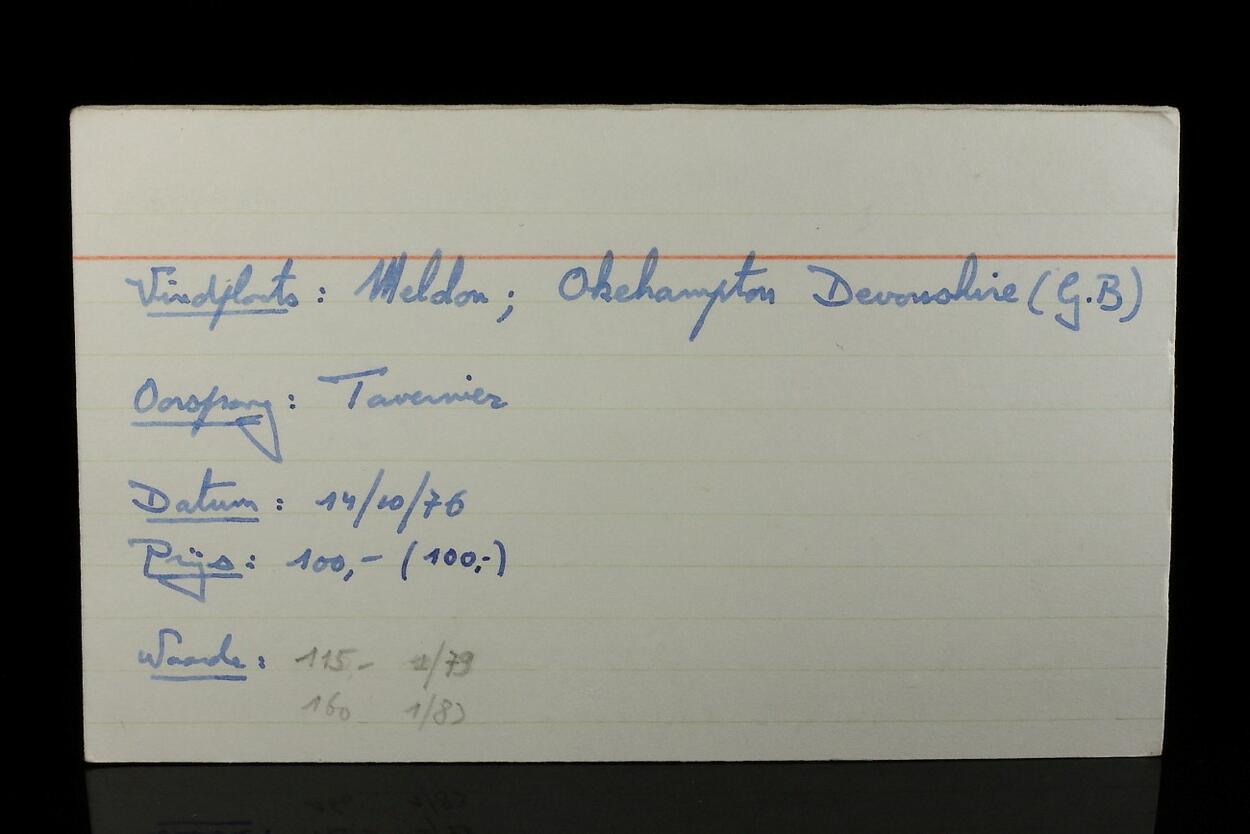 Vindplaats : Meldon ; Okehampton Devonshire (G.B)
Oorsprong : Tavernier
Datum : 14/10/76
Prijs : 100,- (100,-)
Waarde : 115,- 1/79
160 1/82